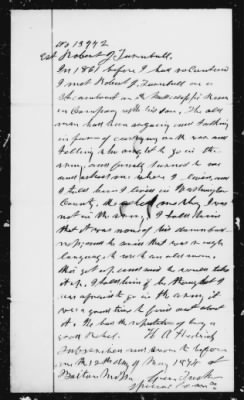 No 13972
Est Robert J. Turnbull.
In 1861 before I had volunteered
I met Robert J. Turnbull on a
Steamboat on the Mississippi River
in Company with his son. The old
man had been arguing and talking
in favor of carrying on the war and
telling he ought to go in the
army, and finally turned to me
and asked me where I lived, and
I told him I lived in Washington
County. He asked me why I was
not in the army, I told him
that it was none of his damned
and he said that was rough
language to use to an old man.
He got up and said he would take
it up. I told him if he thought I
was afraid to go in the army, it
was a good time to find out about
it. He had the reputation of being a
Rebel. H. A.
Subscribed and sworn to before
me this 12th day of May 1874 at
Green
Special Comr